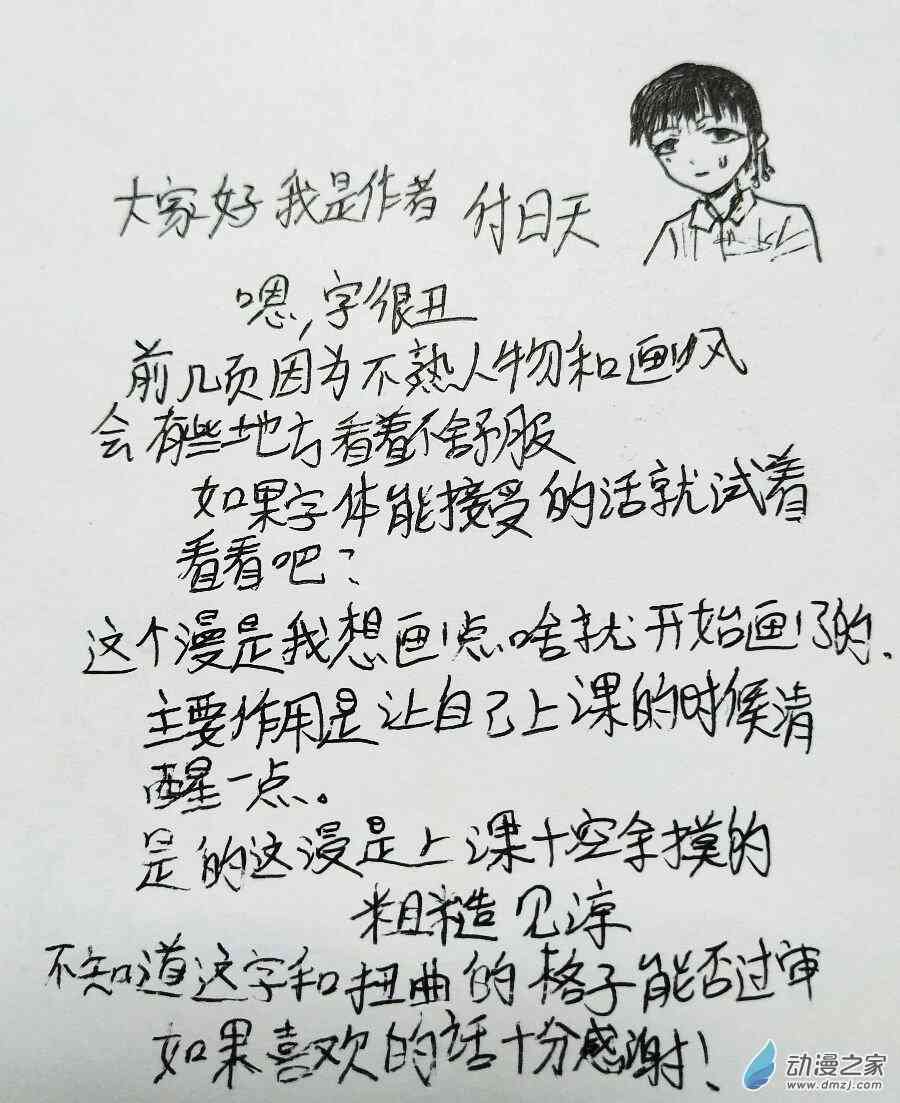 大家好 我是作者 付日天
嗯,字很丑
前几页因为不熟人物和画风
会有些地方看着不舒服
如果字体能接受的话就试着
看看吧?
这个漫是我想画点啥就开始画了的.
主要作用是让自己上课的时候清
醒一点。
是的这漫是上课+空余摸的
粗糙见谅
不知道这字和扭曲的格子能否过审
如果喜欢的话十分感谢!
动漫之家
www.dmzj.com